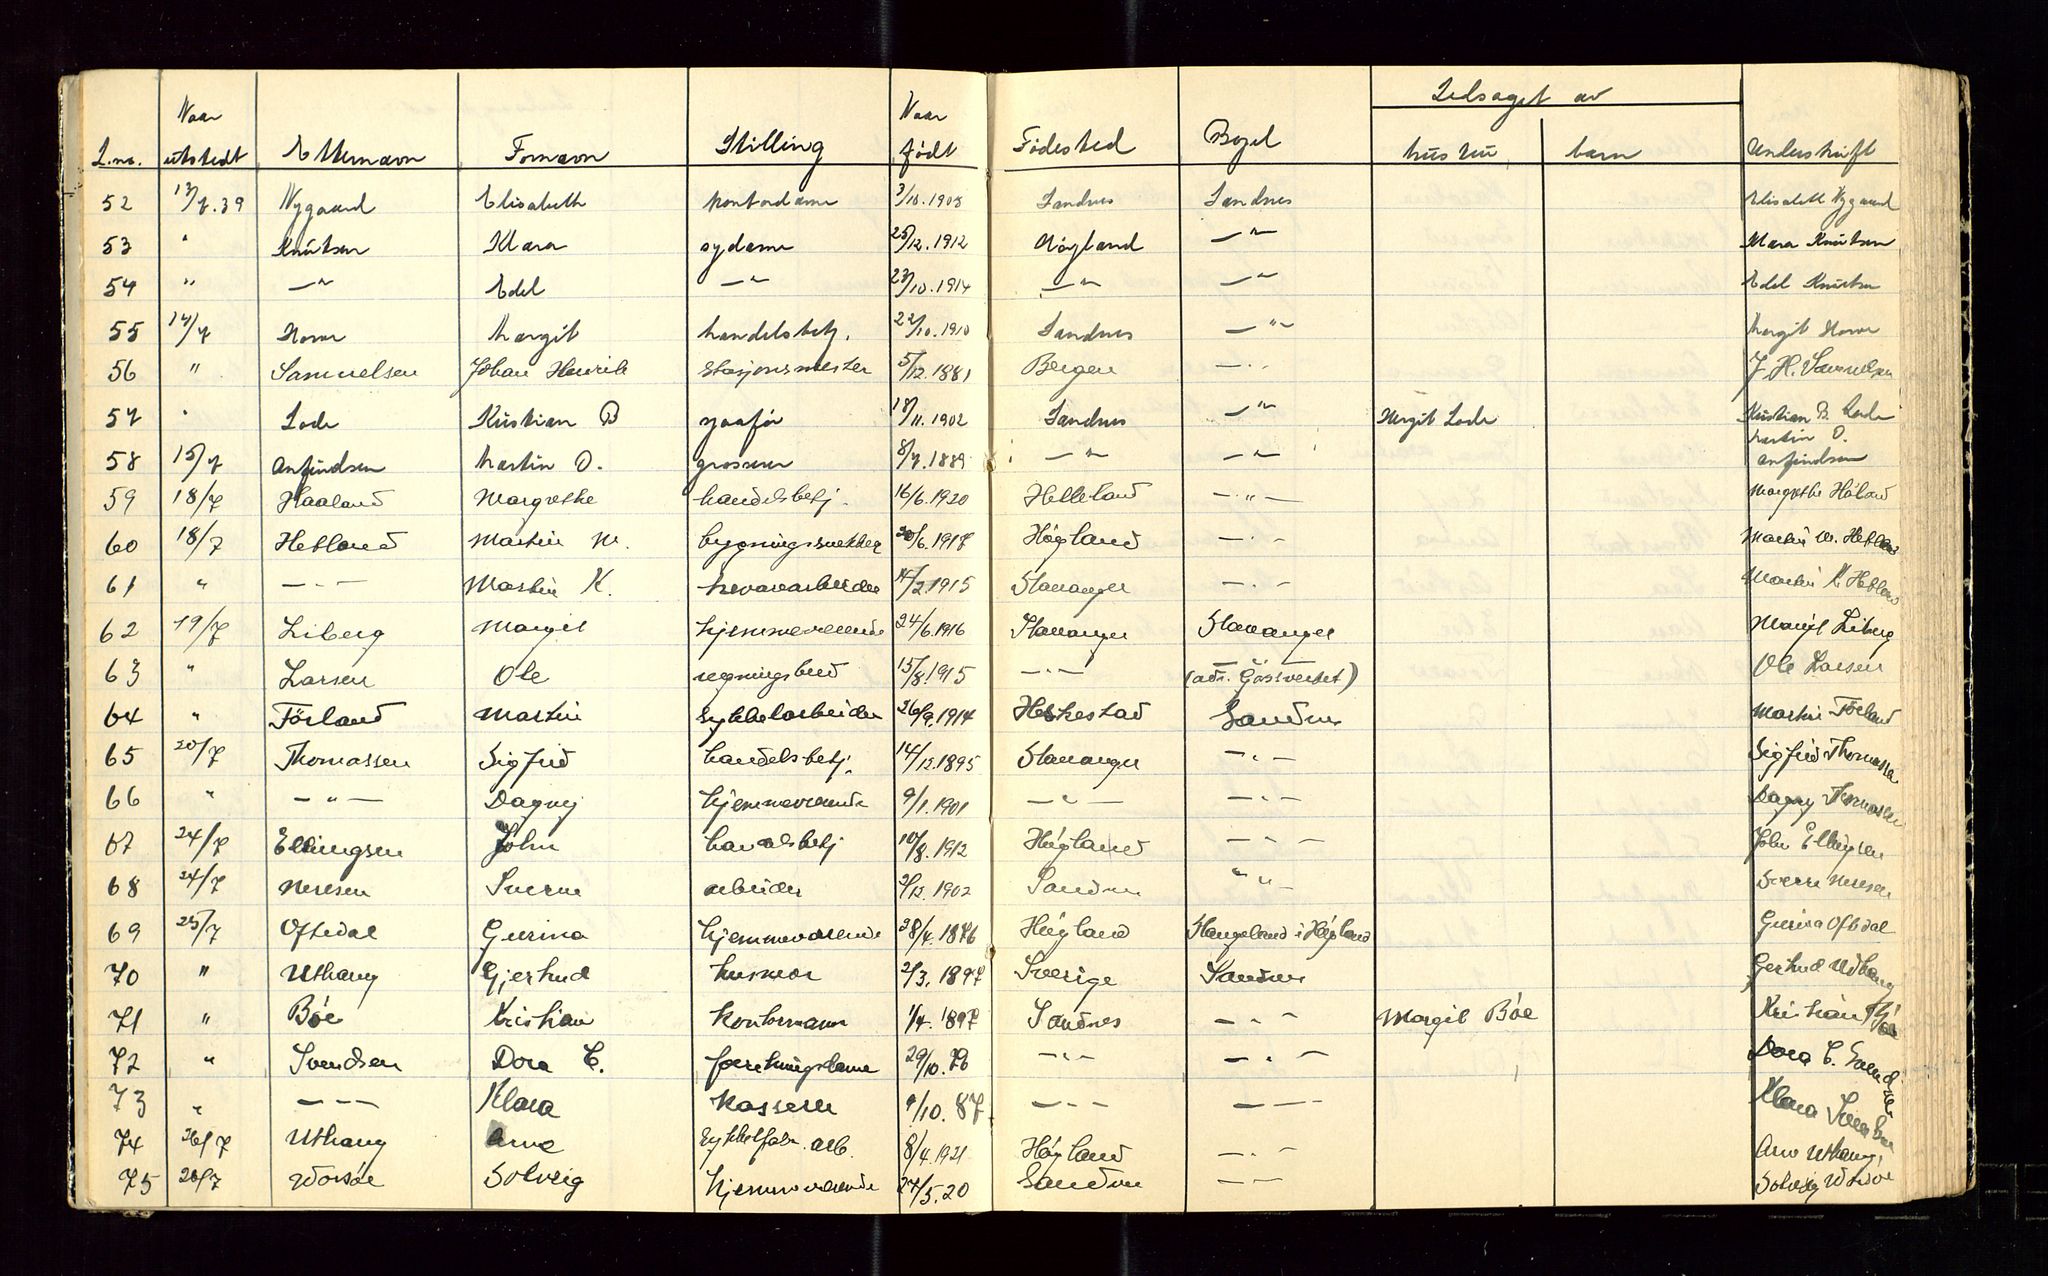 Naar Naar Ledsaget av
L.no. utstedt Etternavn Fornavn Stilling født Fødested Bopel hustru barn Underskrift
52 13/7.39 Nygaard Elisabeth kontordame 3/10.1908 Sandnes Sandnes Elisabeth Nygaard
53 " Knutsen Klara sydame 25/12.1912 Høyland —"— Klara Knutsen
54 " —"— Edel —"— 23/10.1914 —"— —"— Edel Knutsen
55 14/7 Hove Margit handelsbetj. 22/10.1910 Sandnes —"— Margit Hove
56 " Samuelsen Johan Henrik stasjonsmester 5/12.1881 Bergen —"— J. H. Samuelsen
57 " Lode Kristian B sjåfør 18/11.1902 Sandnes —"— Margit Lode Kristian B. Lode
58 15/7 Anfindsen Martin O. grosserer 8/7.1889 —"— —"— Martin O. Anfindsen
59 18/7 Haaland Margrethe handelsbetj. 16/6.1920 Helleland —"— Margrethe Håland
60 18/7 Hetland Martin M. bygningssnekker 20/6.1917 Høyland —"— Martin M. Hetland
61 " —"— Martin K. 14/2.1915 Stavanger —"— Martin K. Hetland
62 19/7 Liberg Margit hjemmeværende 24/6.1916 Stavanger Stavanger Margit Liberg
63 " Larsen Ole 15/8.1915 —"— (adr. Gassverket) Ole Larsen
64 " Förland Martin sykkelarbeider 26/9.1914 Heskestad Sandnes Martin Förland
65 20/7 Thomassen Sigfrid handelsbetj. 14/12.1895 Stavanger —"— Sigfrid Thomassen
66 " —"— Dagny hjemmeværende 9/1.1901 —"— —"— Dagny Thomassen
67 24/7 Ellingsen John handelsbetj 10/8.1912 Høyland —"— John Ellingsen
68 24/7 Nevesen Sverre arbeider 2/12.1902 Sandnes —"— Sverre Nevesen
69 25/7 Oftedal Gurina hjemmeværende 28/4.1876 Høyland Stangeland i Høyland Gurina Oftedal
70 " Uthaug Gjertrud husmor 2/3.1897 Sverige Sandnes Gertrud Uthaug
71 " Bøe Kristian kontormann 1/4.1897 Sandnes —"— Margit Bøe Kristian Bøe
72 " Svendsen Dora C. forretningsdame 29/10.76 —"— —"— Dora C. Svendsen
73 " —"— Klara kasserer 9/10.87 —"— —"— Klara Svendsen
74 26/7 Uthaug Arne Sykkelfabr. arb. 8/4.1921 Høyland —"— Arne Uthaug
75 26/7 Worsøe Solveig hjemmeværende 27/5.20 Sandnes —"— Solveig Worsøe